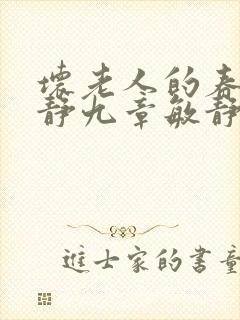 壞老人的春
靜九章敏靜
進士家的書童